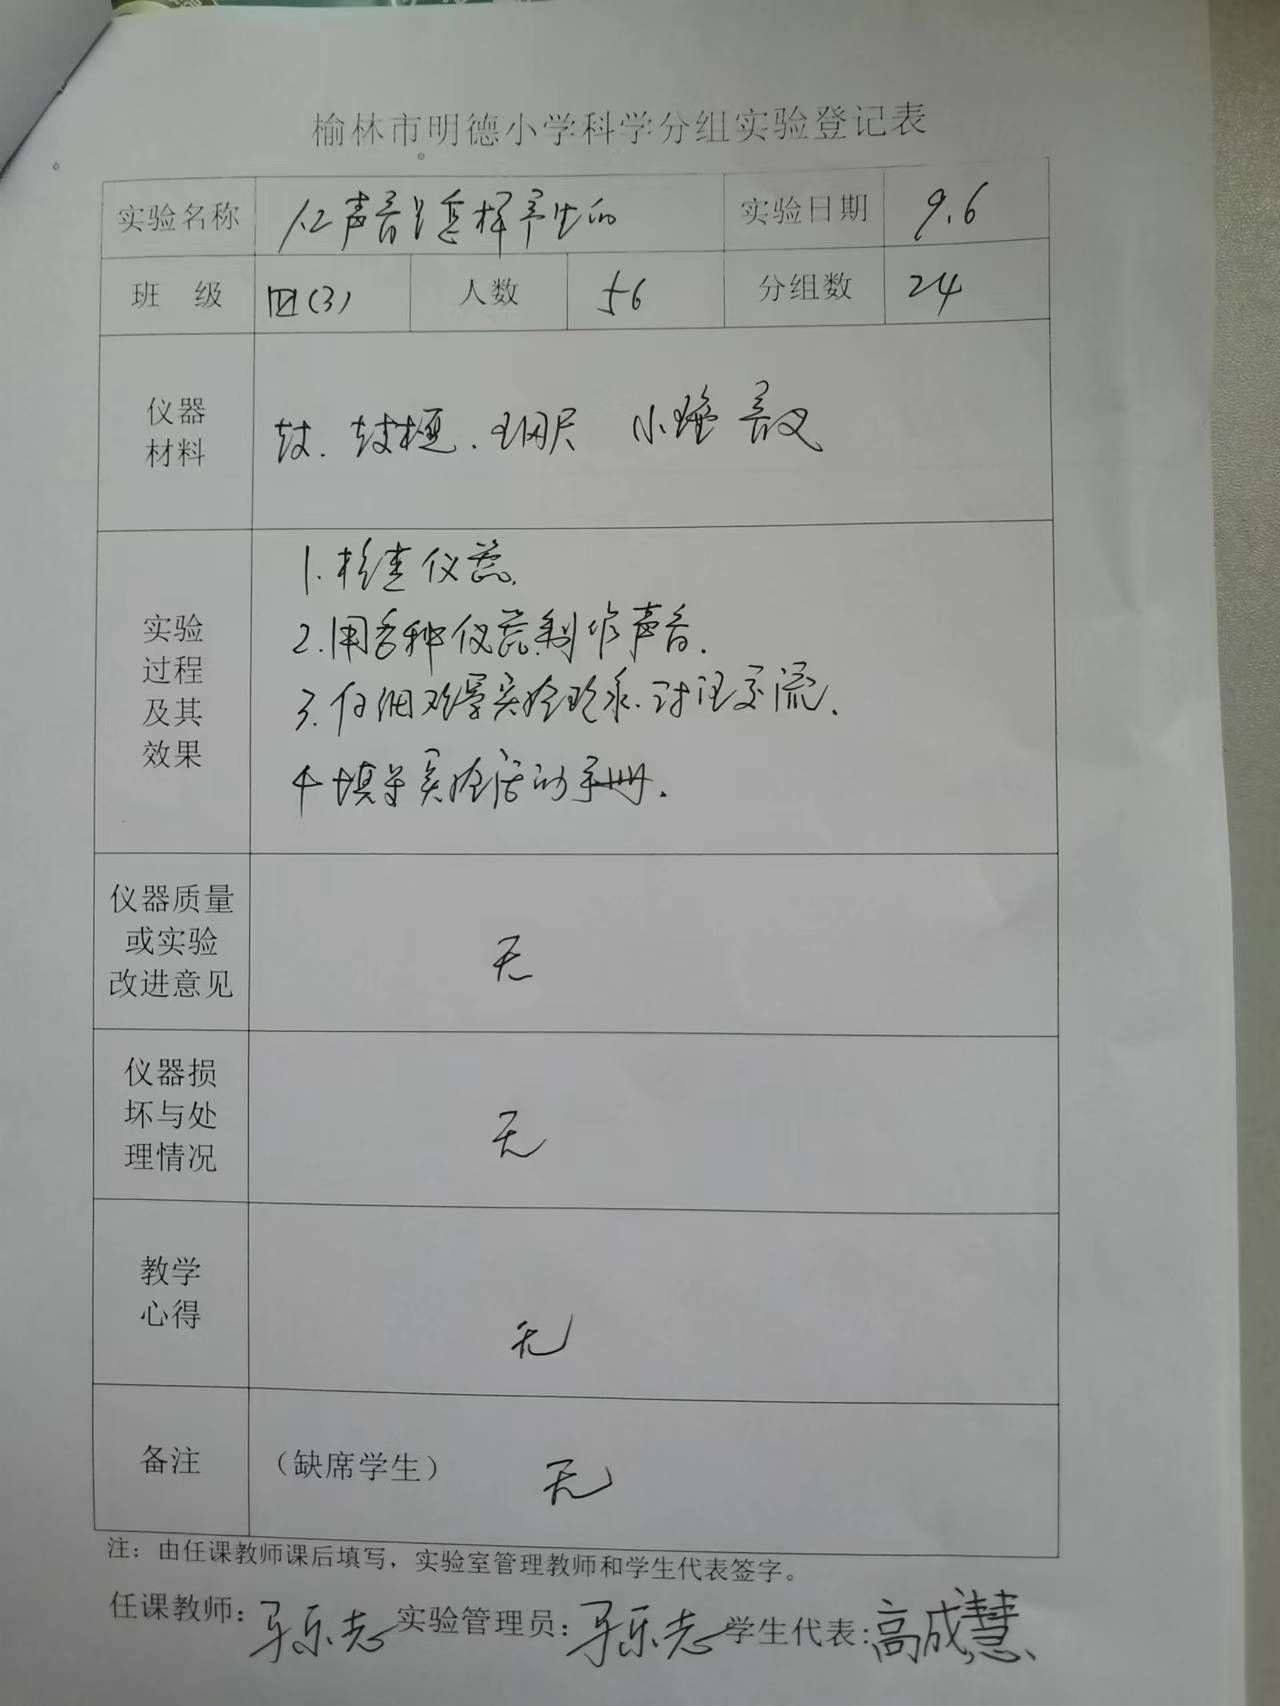 榆林市明德小学科学分组实验登记表
实验名称 1.2声音是怎样产生的 实验日期 9.6
班 级 四(3) 人数 56 分组数 24
仪器
材料
鼓、鼓槌、钢尺 音叉
实验
过程
及其
效果
1.检查仪器.
2.用各种仪器制作声音.
3.仔细观察实验现象.讨论交流.
4 填写实验活动手册.
仪器质量
或实验
改进意见
无
仪器损
坏与处
理情况
无
教学
心得
无
备注 (缺席学生) 无
注：由任课教师课后填写，实验室管理教师和学生代表签字。
任课教师: 实验管理员: 学生代表:高成慧